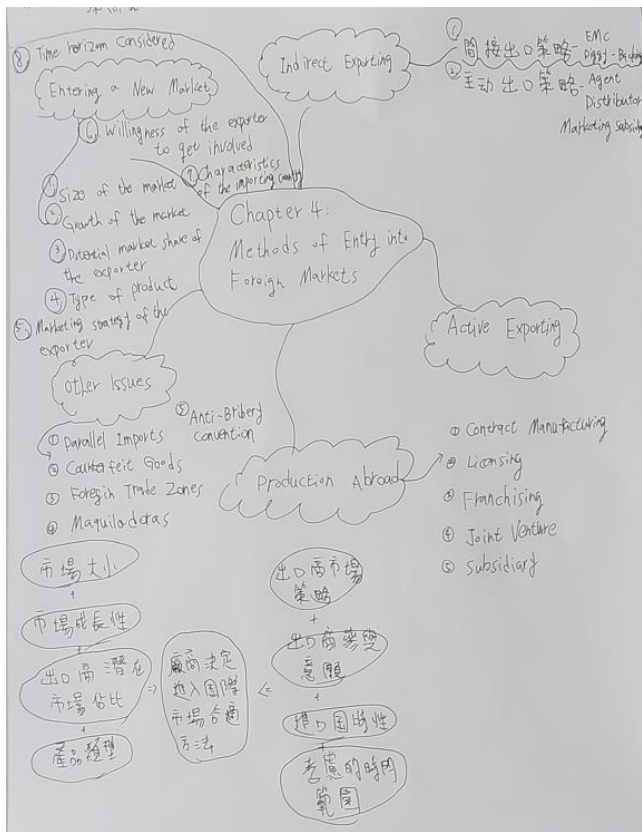 ⑧ Time horizon considered
Entering a New Market
⑥ Willingness of the exporter
to get involved
⑦ Characteristics
of the importing country
① Size of the market
② Growth of the market
③ Potential market share of
the exporter
④ Type of product
⑤ Marketing strategy of the
exporter
Indirect Exporting
① 間接出口策略- EMC
② 主动出口策略- Agent
Distributor
Marketing Subsidi
Chapter 4:
Methods of Entry into
Foreign Markets
Active Exporting
Other Issues
① Parallel Imports
② Counterfeit Goods
③ Foregin Trade Zones
④ Maquiladoras
⑤ Anti-Bribery
Convention
Production Abroad
① Contract Manufacturing
② Licensing
③ Franchising
④ Joint Venture
⑤ Subsidiary
市場大小
+
市場成長性
+
出口商潛在
市場佔比
+
產品類型
⇒
廠商決定
進入国際
市場合適
方法
⇐
出口商市場
策略
+
出口商參與
意願
+
進口国特性
考慮的時間
範圍